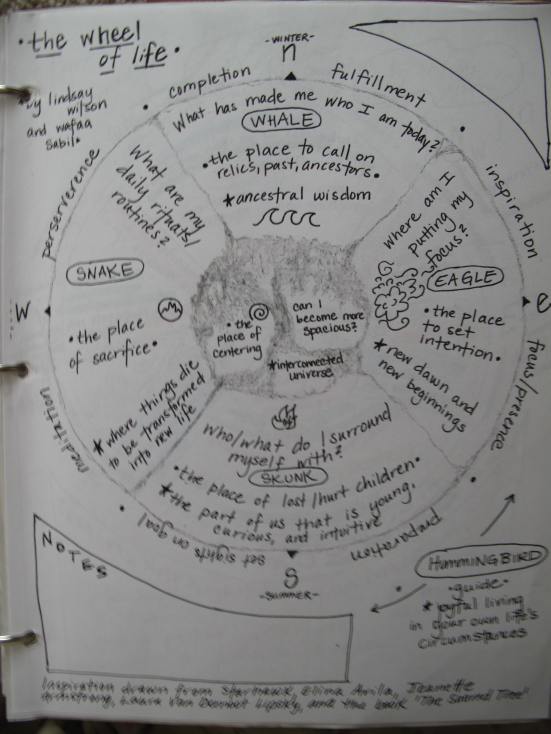 • the wheel
of life •
by lindsay
wilson
and wafaa
Sabil •
-WINTER-
n
completion
fulfillment
What has made me who I am today?
WHALE
• the place to call on
relics, past, ancestors •
* ancestral wisdom
inspiration
where am I
putting my
focus?
EAGLE
• the place
to set
intention •
* new dawn and
new beginnings
e
focus/presence
perserverence
What are my
daily rituals/
routines?
SNAKE
W
• the place
of sacrifice •
* where things die
to be transformed
into new life
meditation
• the
place of
centering
can I
become more
spacious?
* interconnected
universe
who/what do I surround
myself with?
SKUNK
• the place of lost/hurt children •
* the part of us that is young,
curious, and intuitive
set sights on goal
preparation
S
-SUMMER-
NOTES
HUMMINGBIRD
• guide •
* joyful living
in your own life's
circumstances
Inspiration drawn from Starhawk, Elima Avila, Jeanette
Armstrong, Laura Van Dernoot Lipsky, and the book "The Sacred Tree"